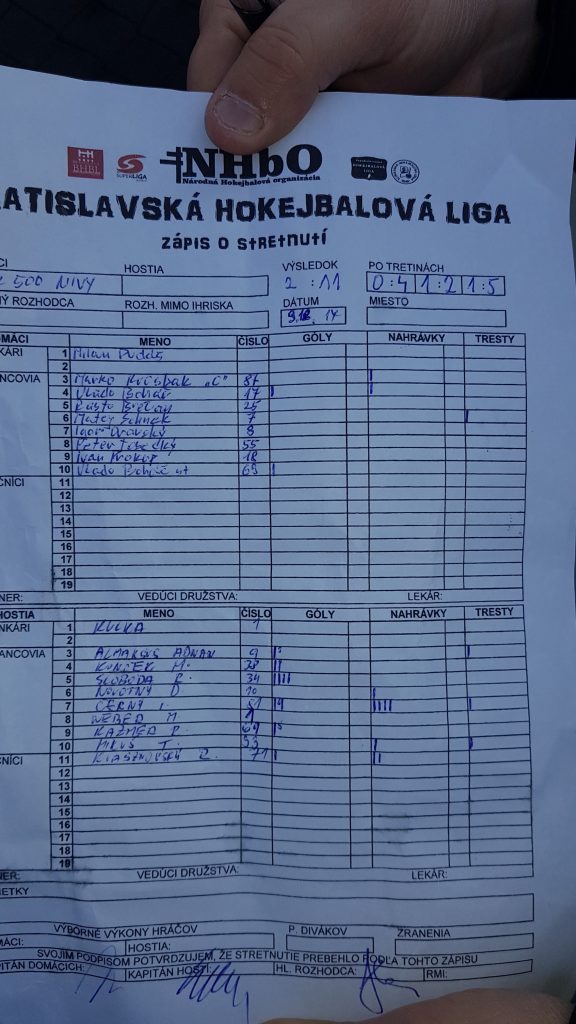 BHBL SUPERLIGA NHbO HOKEJBALOVÁ LIGA
Národná Hokejbalová organizácia
ATISLAVSKÁ HOKEJBALOVÁ LIGA
ZÁPIS O STRETNUTÍ
CI HOSTIA VÝSLEDOK PO TRETINÁCH
500 NIVY 2 : 11 0:4 1:2 1:5
Ý ROZHODCA ROZH. MIMO IHRISKA DÁTUM MIESTO
MÁCI MENO ČÍSLO GÓLY NAHRÁVKY TRESTY
NKÁRI 1 Milan
2
NCOVIA 3 Marko "C" 87
4 Vlado 17
5 25
6 Matej 7
7 Igor 8
8 Peter 55
9 Ivan Prokop 18
10 Vlado 69
ČNÍCI 11
12
13
14
15
16
17
18
19
NER: VEDÚCI DRUŽSTVA: LEKÁR:
HOSTIA MENO ČÍSLO GÓLY NAHRÁVKY TRESTY
NKÁRI 1 KULKA 1
2
NCOVIA 3 ADNAN 9
4 M. 28
5 SLOBODA R. 34
6 NOVOTNÝ D 10
7 ČERNÝ 51
8 WEBER M
9 KAZMER P. 69
10 T. 53
ČNÍCI 11 71
12
13
14
15
16
17
18
19
NER: VEDÚCI DRUŽSTVA: LEKÁR:
METKY
VÝBORNÉ VÝKONY HRÁČOV P. DIVÁKOV ZRANENIA
MÁCI: HOSTIA:
SVOJIM PODPISOM POTVRDZUJEM, ŽE STRETNUTIE PREBEHLO PODĽA TOHTO ZÁPISU
PITÁN DOMÁCICH: KAPITÁN HOSTÍ: HL. ROZHODCA: RMI: